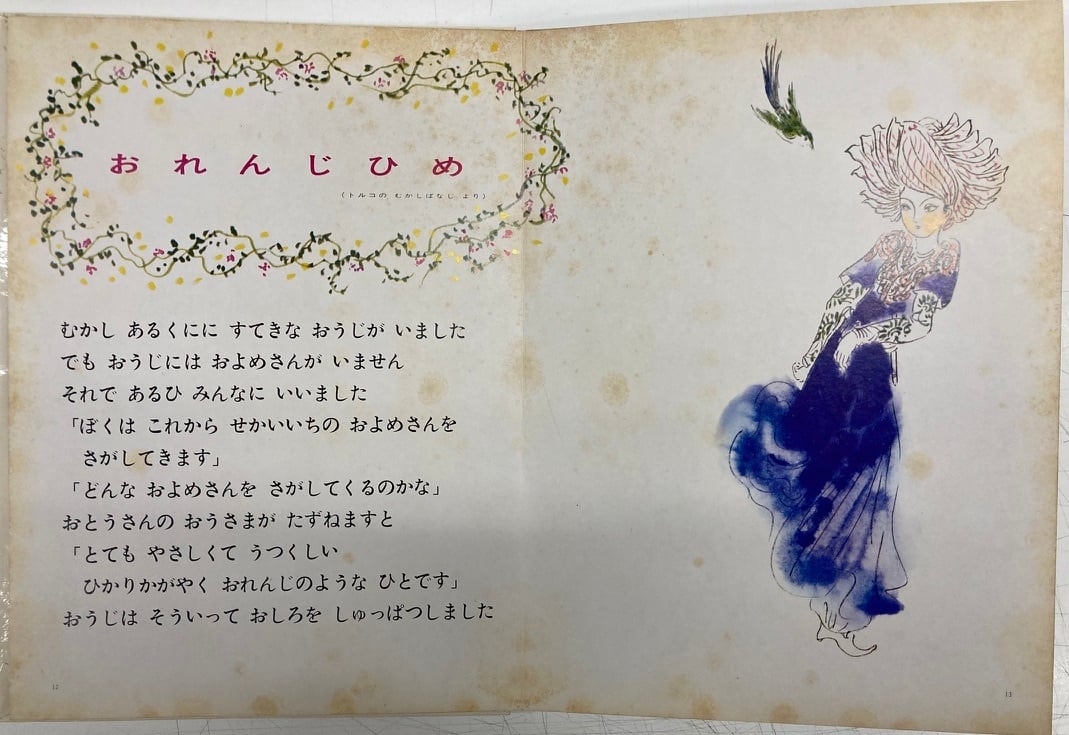 おれんじひめ
(トルコの むかしばなし より)
むかし あるくにに すてきな おうじが いました
でも おうじには およめさんが いません
それで あるひ みんなに いいました
「ぼくは これから せかいいちの およめさんを
さがしてきます」
「どんな およめさんを さがしてくるのかな」
おとうさんの おうさまが たずねますと
「とても やさしくて うつくしい
ひかりかがやく おれんじのような ひとです」
おうじは そういって おしろを しゅっぱつしました
12
13